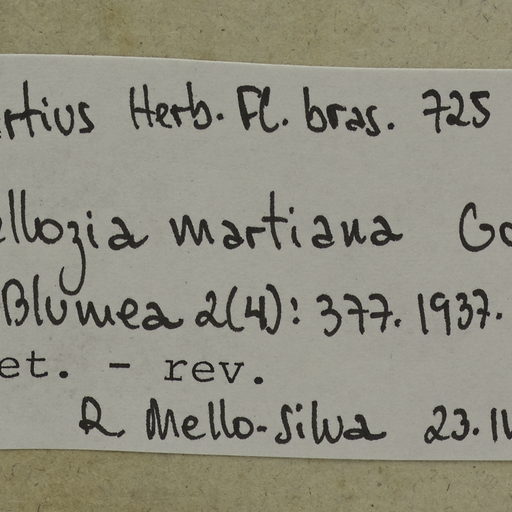 rtius Herb. Fl. bras. 725
ellozia martiana Go
Blumea 2(4): 377. 1937.
et. - rev.
R. Mello-Silva 23.IV